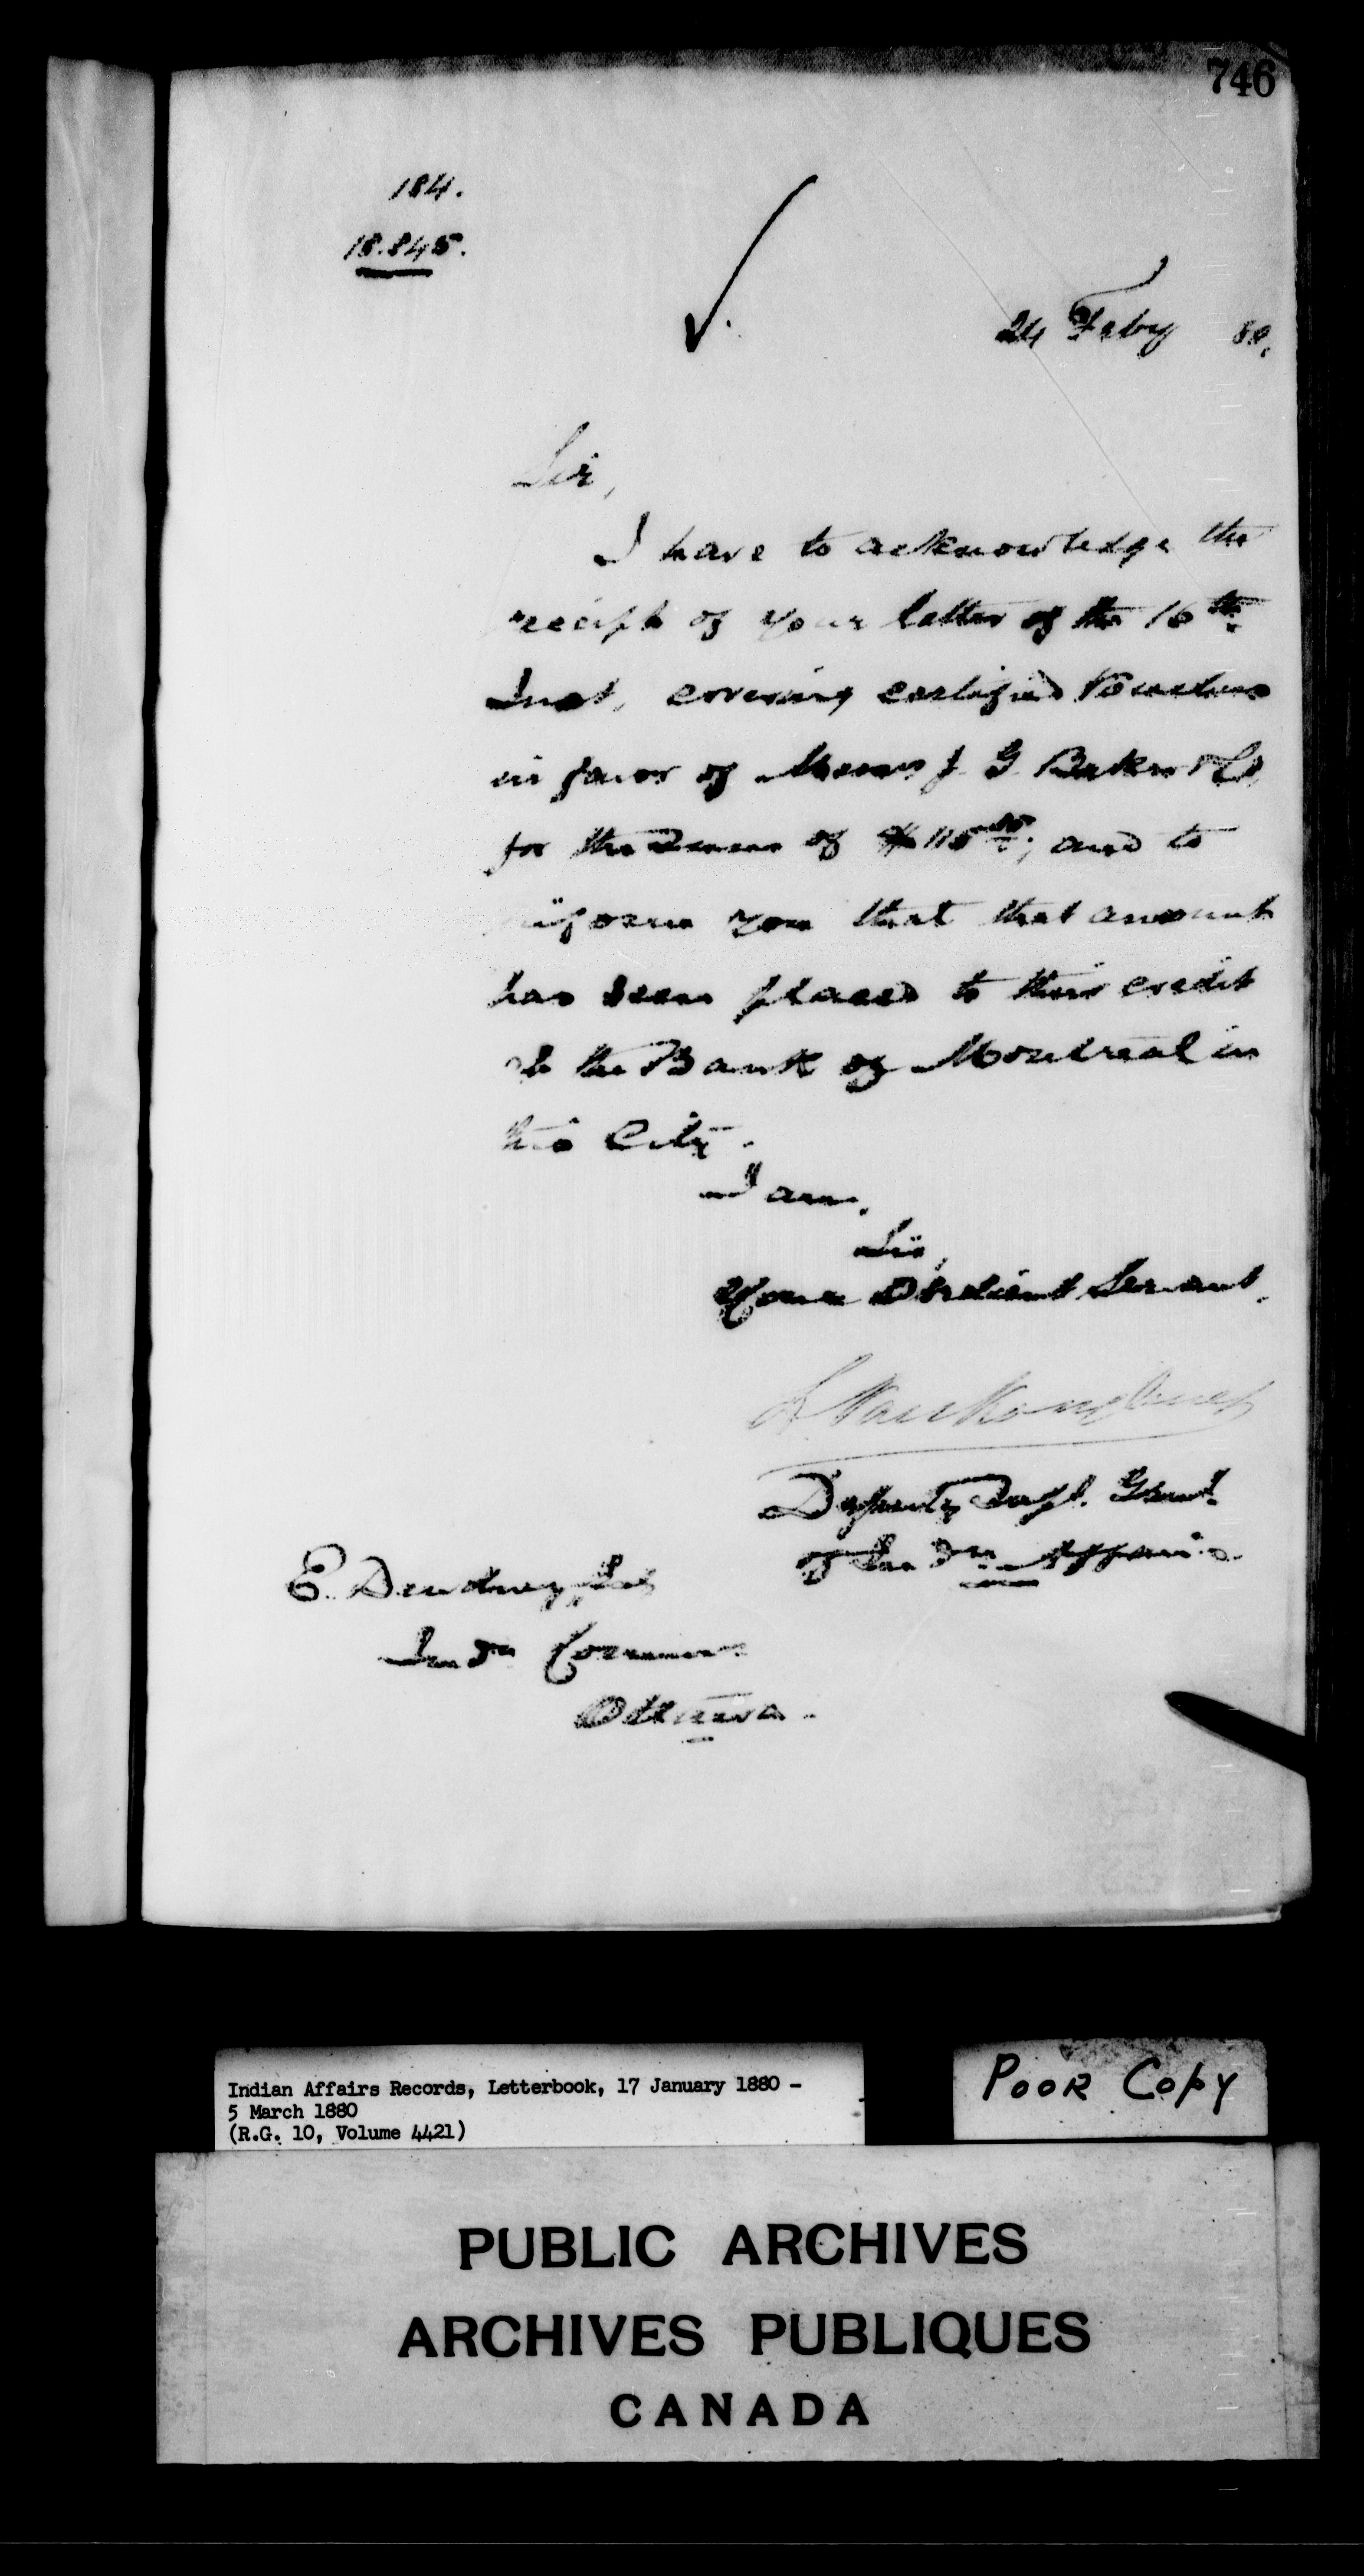 746
184.
18.845.
24 Feby 80.
Sir,
I have to acknowledge the
receipt of your letter of the 16th
Inst, covering certified Vouchers
in favor of Messrs J. G. Baker & Co
for the sum of $115; and to
inform you that that amount
has been placed to their credit
at the Bank of Montreal in
this City.
I am,
Sir,
Your Obedient Servant,
L VanKoughnet
Deputy Supt. Genl.
of Indn Affairs
E. Dewdney, Esq
Indn Commr
Ottawa.
Indian Affairs Records, Letterbook, 17 January 1880 -
5 March 1880
(R.G. 10, Volume 4421)
POOR COPY
PUBLIC ARCHIVES
ARCHIVES PUBLIQUES
CANADA